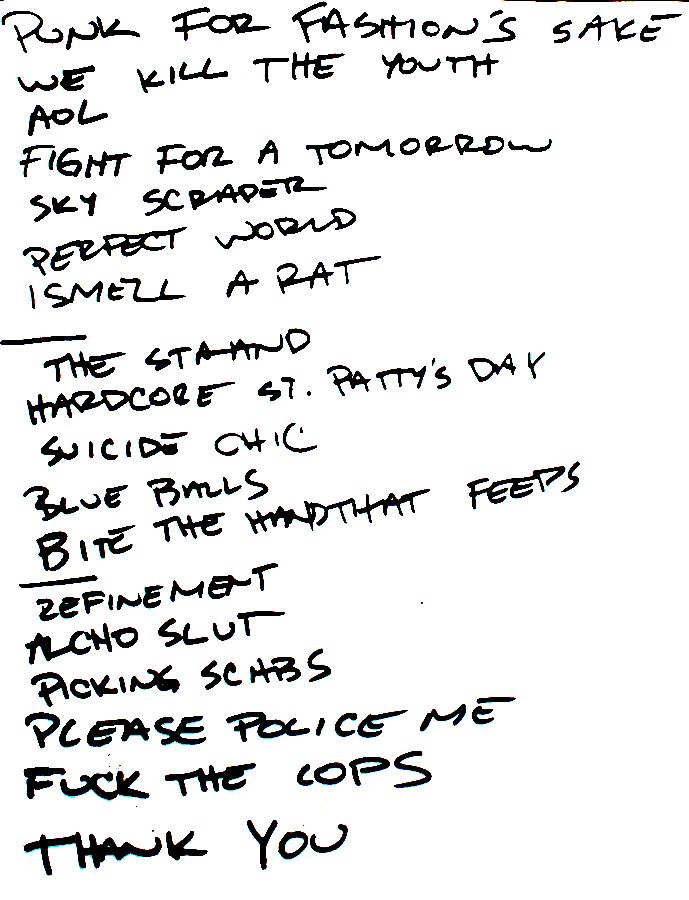 PUNK FOR FASHION'S SAKE
WE KILL THE YOUTH
AOL
FIGHT FOR A TOMORROW
SKY SCRAPER
PERFECT WORLD
I SMELL A RAT
THE STAAND
HARDCORE ST. PATTY'S DAY
SUICIDE CHIC
BLUE BALLS
BITE THE HAND THAT FEEDS
REFINEMENT
ALCHO SLUT
PICKING SCABS
PLEASE POLICE ME
FUCK THE COPS
THANK YOU